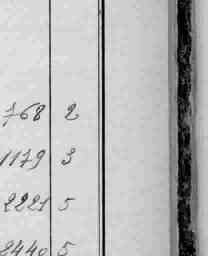 768 2
1179 3
2221 5
2440 5